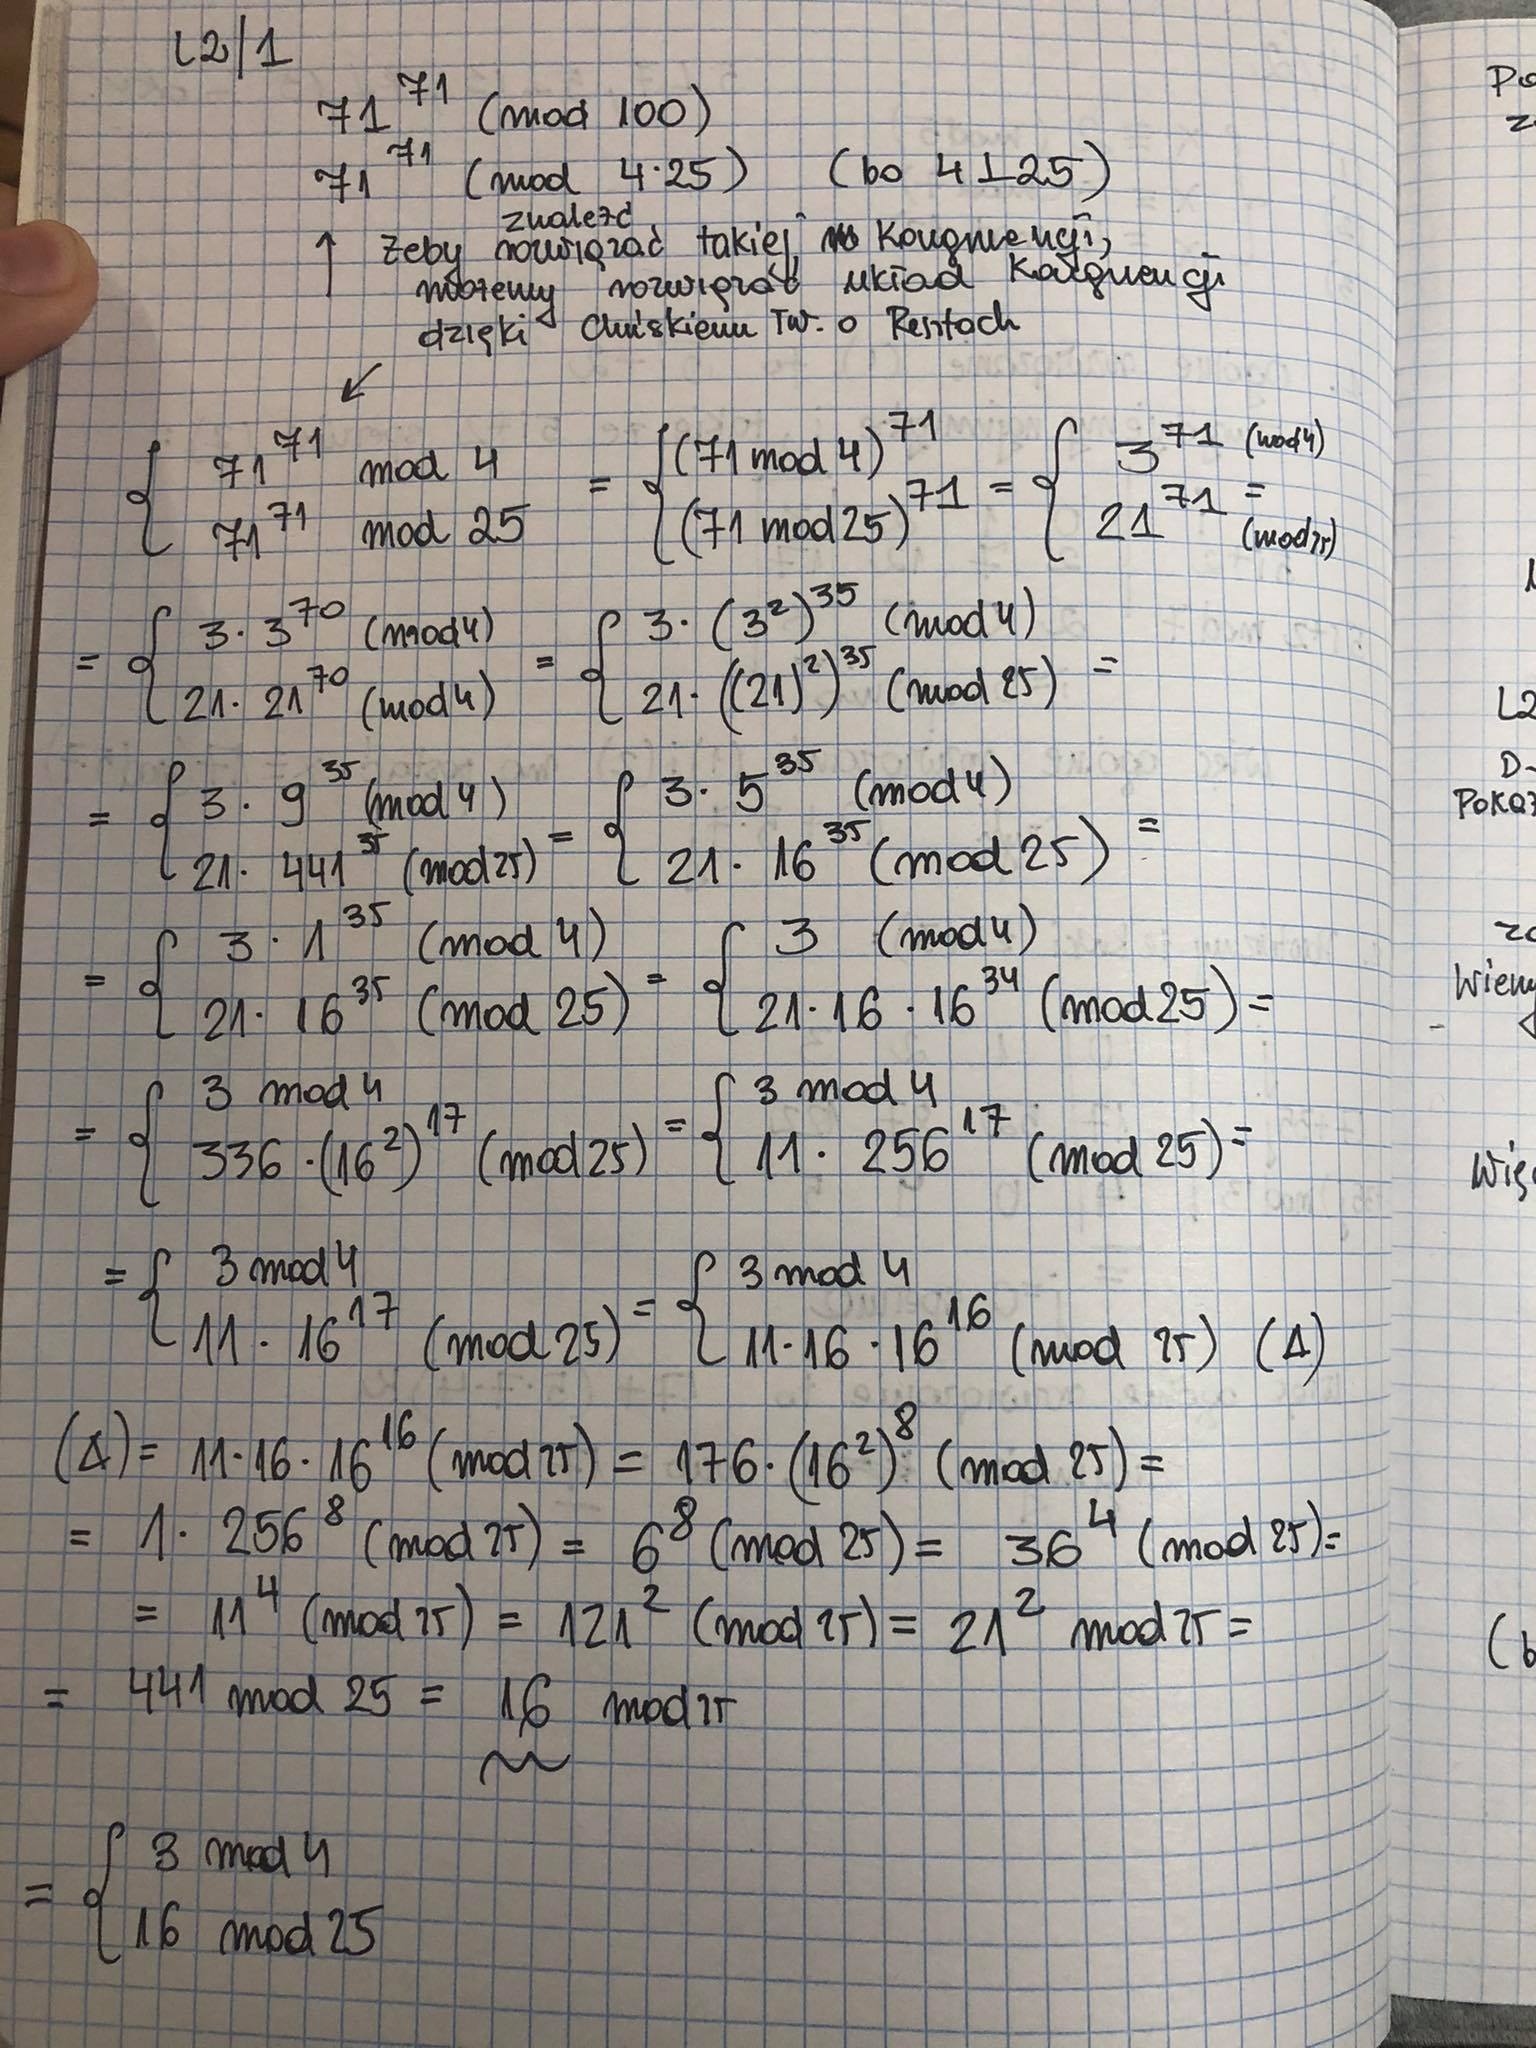 L2/1
71^71 (mod 100)
71^71 (mod 4·25) (bo 4⊥25)
znaleźć
↑ żeby rozwiązać takiej kongruencji,
możemy rozwiązać układ kongruencji
dzięki Chińskiemu Tw. o Resztach
↙
{ 71^71 mod 4 = { (71 mod 4)^71 = { 3^71 (mod 4)
71^71 mod 25 (71 mod 25)^71 21^71 (mod 25) =
= { 3·3^70 (mod 4) = { 3·(3^2)^35 (mod 4)
21·21^70 (mod 4) 21·((21)^2)^35 (mod 25) =
= { 3·9^35 (mod 4) = { 3·5^35 (mod 4) =
21·441^35 (mod 25) 21·16^35 (mod 25)
= { 3·1^35 (mod 4) = { 3 (mod 4)
21·16^35 (mod 25) 21·16·16^34 (mod 25) =
= { 3 mod 4 = { 3 mod 4
336·(16^2)^17 (mod 25) 11·256^17 (mod 25) =
= { 3 mod 4 = { 3 mod 4
11·16^17 (mod 25) 11·16·16^16 (mod 25) (Δ)
(Δ) = 11·16·16^16 (mod 25) = 176·(16^2)^8 (mod 25) =
= 1·256^8 (mod 25) = 6^8 (mod 25) = 36^4 (mod 25) =
= 11^4 (mod 25) = 121^2 (mod 25) = 21^2 mod 25 =
= 441 mod 25 = 16 mod 25
= { 3 mod 4
16 mod 25
L2
D-
Wieny
(b